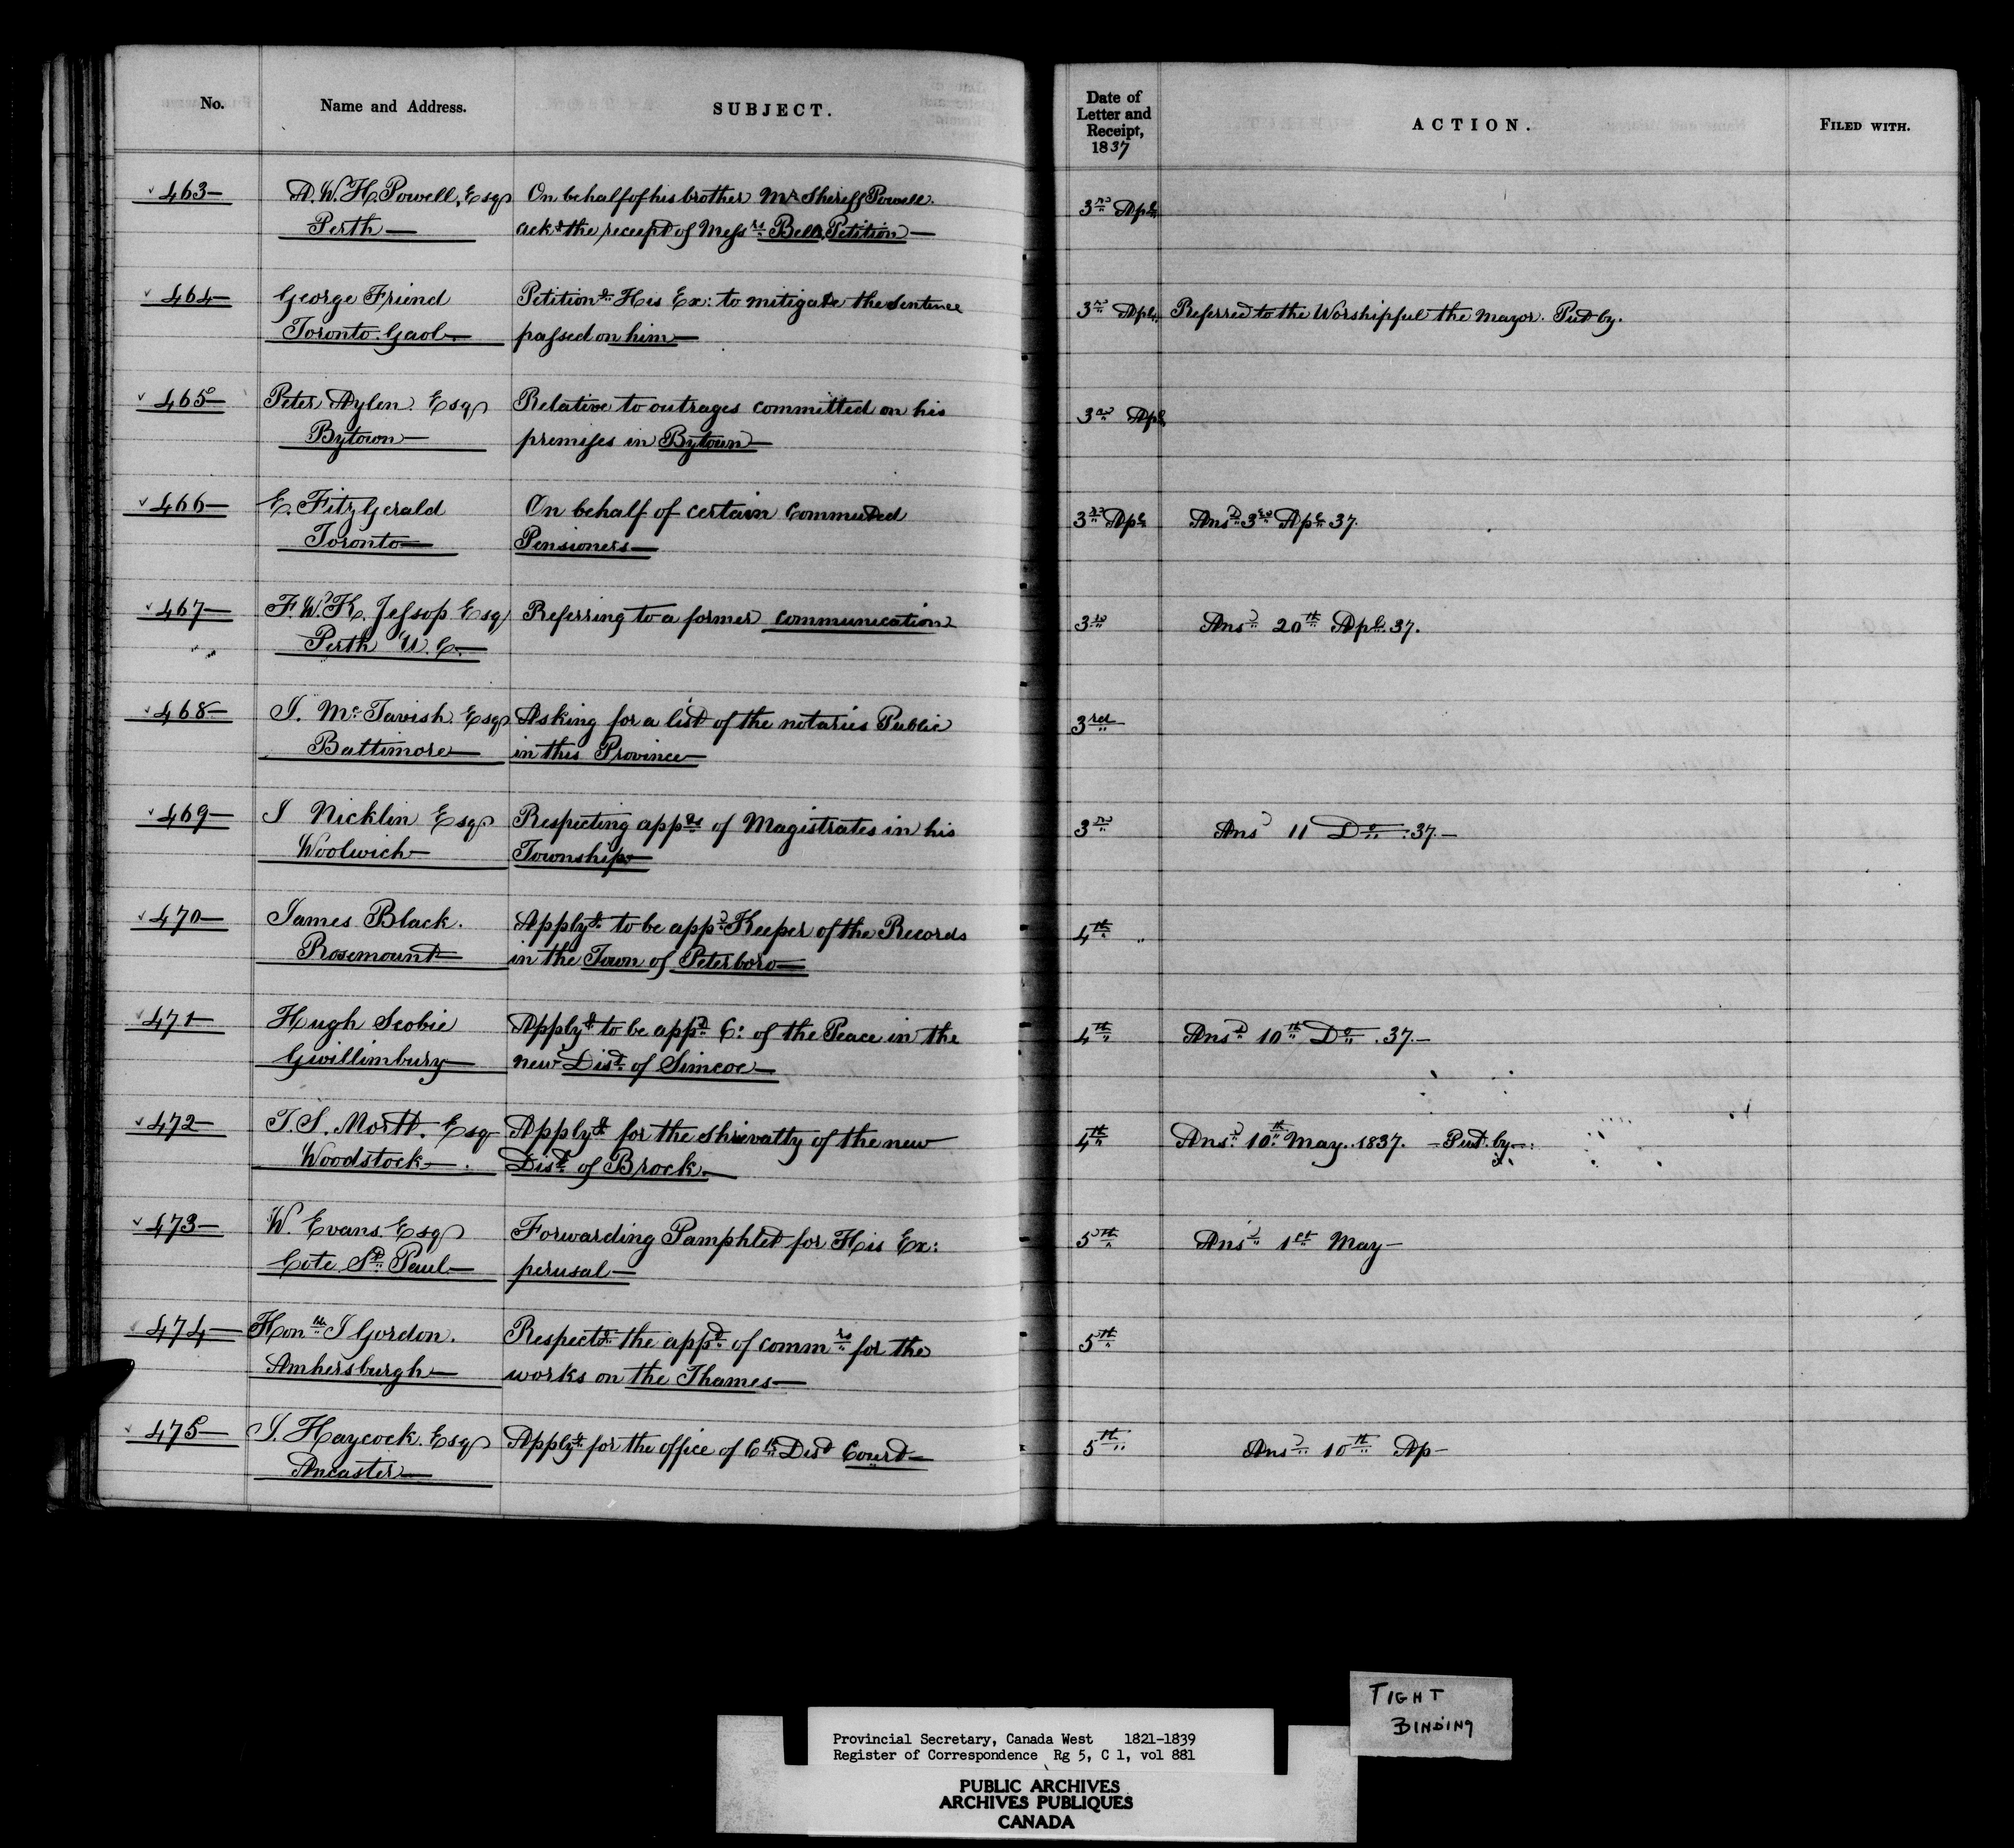 No. Name and Address. SUBJECT. Date of Letter and Receipt, 1837 ACTION. FILED WITH.
463 A. W. H. Powell, Esq On behalf of his brother Mr Sheriff Powell. 3rd Apl
Perth ackg the receipt of Messrs Bell Petition
464 George Friend Petitiong His Ex: to mitigate the sentence 3rd Apl Referred to the Worshipful the Mayor. Put by.
Toronto Gaol passed on him
465 Peter Aylen Esq Relative to outrages committed on his 3rd Apl
Bytown premises in Bytown
466 E. FitzGerald On behalf of certain Commuted 3rd Apl Ansd 3rd Apl 37.
Toronto Pensioners
467 F. W. K. Jessop Esq Referring to a former communication 3rd Ansd 20th Apl. 37.
Perth U. C.
468 J. McTavish Esq Asking for a list of the notaries Public 3rd
Baltimore in this Province
469 J Nicklin Esq Respecting appts of Magistrates in his 3rd Ansd 11 Do. 37.
Woolwich Township
470 James Black. Applyg to be appd Keeper of the Records 4th
Rosemount in the Town of Peterboro
471 Hugh Scobie Applyg to be appd C: of the Peace in the 4th Ansd 10th Do. 37.
Gwillimbury new Dist of Simcoe
472 T. S. Esq Applyg for the shrievalty of the new 4th Ansd 10th May. 1837. Put by
Woodstock Dist of Brock.
473 W. Evans. Esq Forwarding Pamphlet for His Ex: 5th Ansd 1st May
Cote St Paul perusal
474 Honble J Gordon. Respectg the appt of commrs for the 5th
Amhersburgh works on the Thames
475 J. Haycock. Esq Applyg for the office of Ck Dist Court 5th Ansd 10th Ap
Ancaster
TIGHT
BINDING
Provincial Secretary, Canada West 1821-1839
Register of Correspondence Rg 5, C 1, vol 881
PUBLIC ARCHIVES
ARCHIVES PUBLIQUES
CANADA